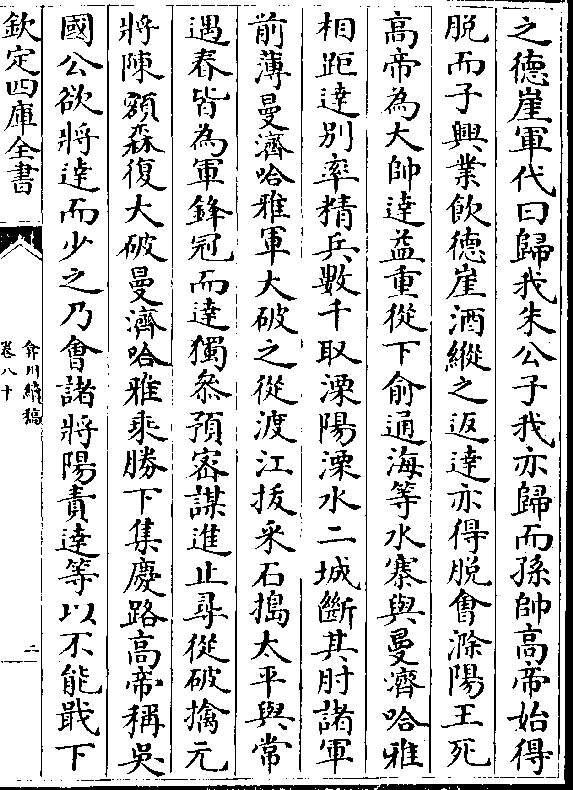 之德崖軍代曰歸我朱公子我亦歸而孫帥高帝始得
脫而子興業飲德崖酒縱之返達亦得脫㑹滁陽王死
高帝為大帥達益重從下俞通海等水寨與曼濟哈雅
相距達別率精兵數千取溧陽溧水二城斷其肘諸軍
前薄曼濟哈雅軍大破之從渡江拔采石搗太平與常
遇春皆為軍鋒冠而達獨叅預密謀進止尋從破擒元
將陳額森復大破曼濟哈雅乘勝下集慶路高帝稱吳
國公欲將達而少之乃㑹諸將陽責達等以不能戢下
欽定四庫全書
弇州續稿
卷八十
二